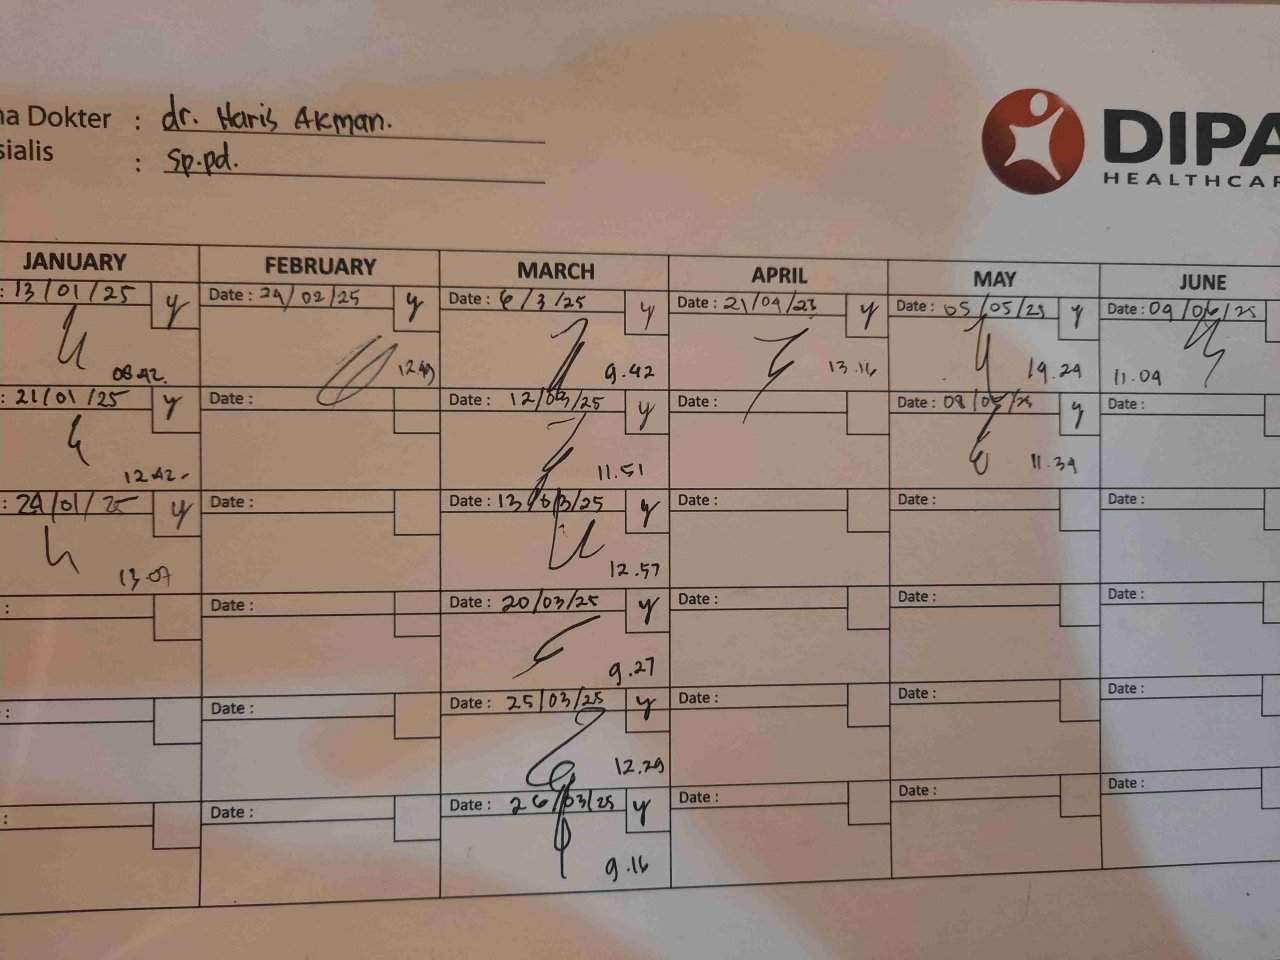 na Dokter : dr. Haris Akman.
sialis : sp.pd.
DIPA
HEALTHCAR
JANUARY FEBRUARY MARCH APRIL MAY JUNE
: 13/01/25 y Date : 24/02/25 y Date : 6/3/25 y Date : 21/04/25 y Date : 05/05/25 y Date : 09/06/25
08.42. 12.49 9.42 13.16 14.24 11.04
: 21/01/25 y Date : Date : 12/03/25 y Date : Date : 08/05/25 y Date :
12.42 11.51 11.34
: 24/01/25 y Date : Date : 13/03/25 y Date : Date : Date :
13.07 12.57
: Date : Date : 20/03/25 y Date : Date : Date :
9.27
: Date : Date : 25/03/25 y Date : Date : Date :
12.29
: Date : Date : 26/03/25 y Date : Date : Date :
9.16